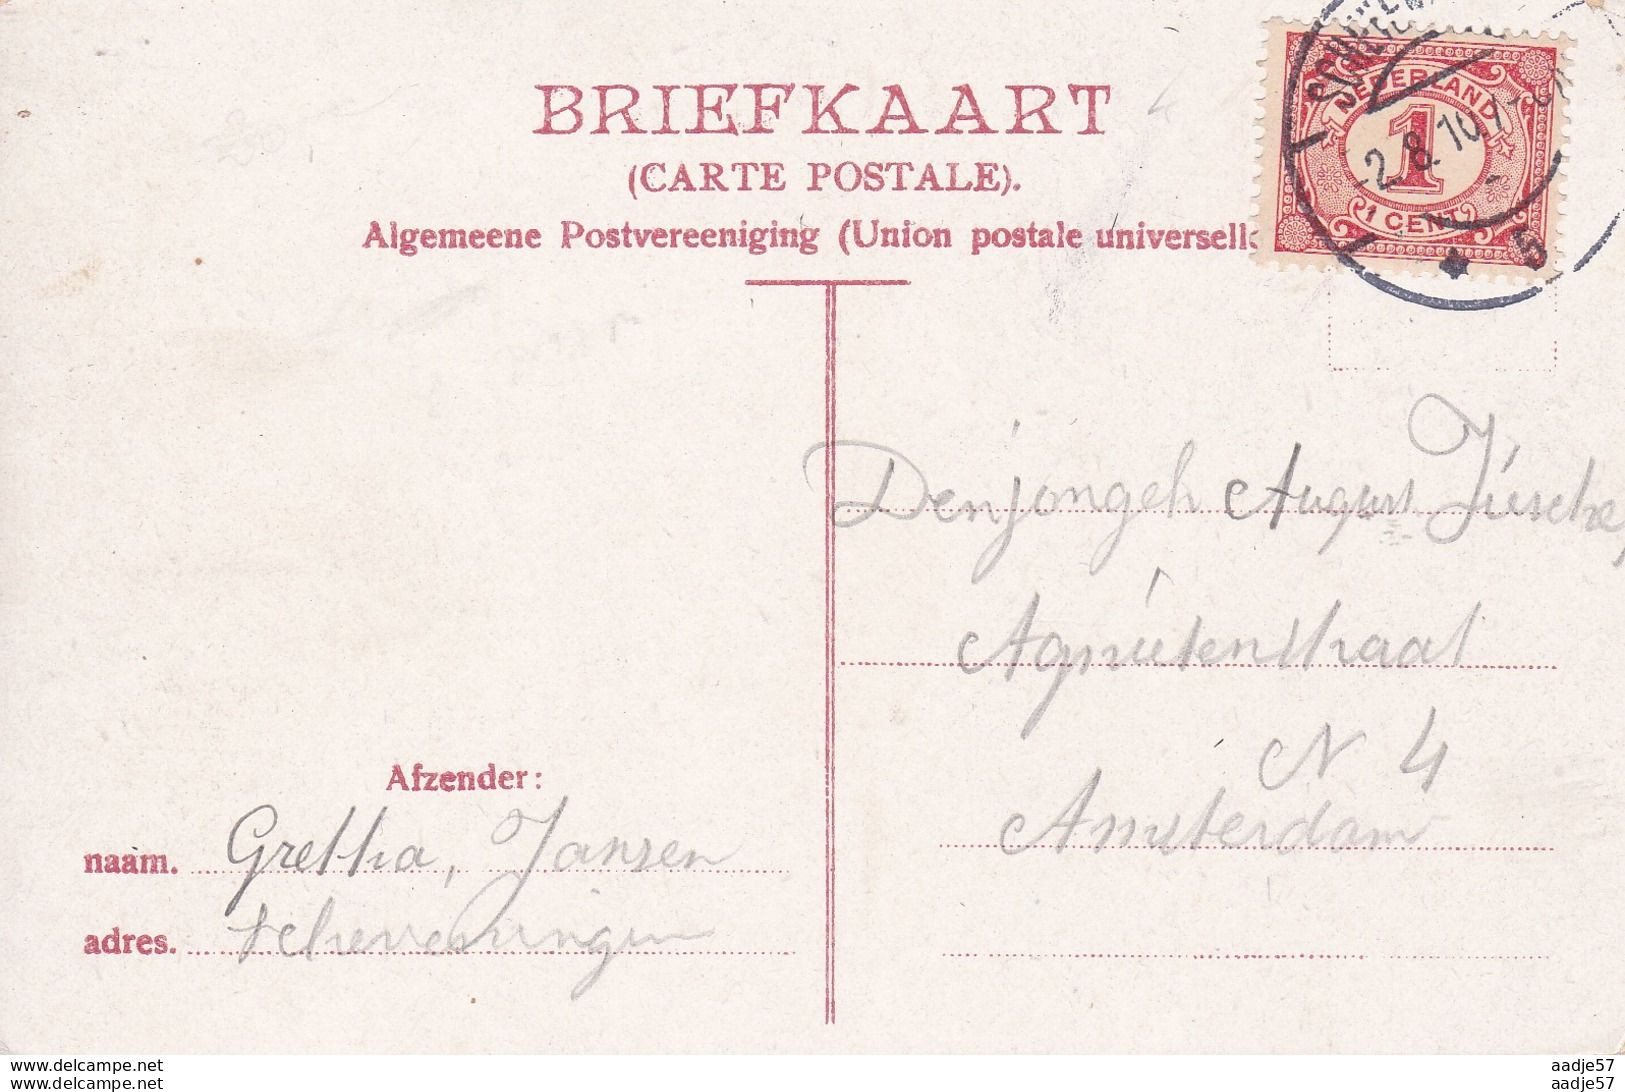 BRIEFKAART
(CARTE POSTALE).
Algemeene Postvereeniging (Union postale universelle
NEDERLAND
1
1 CENT
-2.8.10.7
5
Denjongeh August
Agnietenstraat
N 4
Amsterdam
Afzender:
naam. Gretha, Jansen
adres. Scheveningen
www.delcampe.net
aadje57
www.delcampe.net
aadje57